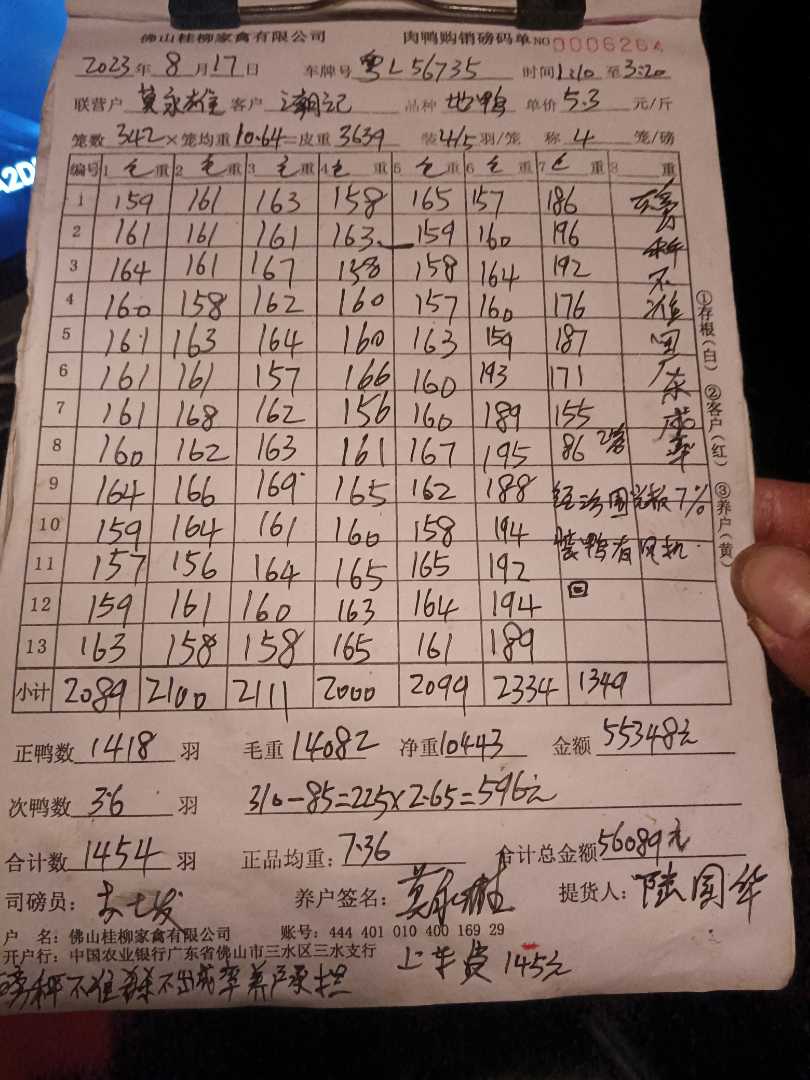 佛山桂柳家禽有限公司 肉鸭购销磅码单 NO 0006264
2023年8月17日 车牌号 粤L56735 时间1:10至3:20
联营户 莫永雄 客户 潮记 品种 地鸭 单价5.3元/斤
笼数342×笼均重10.64=皮重3639 装4/5羽/笼 称4笼/磅
编号 1毛重 2毛重 3毛重 4毛重 5毛重 6毛重 7毛重 8重
1 159 161 163 158 165 157 186
2 161 161 161 163 159 160 196
3 164 161 167 158 158 164 192
4 160 158 162 160 157 160 176
5 161 163 164 160 163 159 187
6 161 161 157 166 160 193 171
7 161 168 162 156 160 189 155
8 160 162 163 161 167 195 86 2笼
9 164 166 169 165 162 188
10 159 164 161 160 158 194
11 157 156 164 165 165 192
12 159 161 160 163 164 194 回
13 163 158 158 165 161 189
小计 2089 2100 2111 2000 2099 2334 1349
磅秤不准
装鸭有风机
①存根(白) ②客户(红) ③养户(黄)
正鸭数1418羽 毛重14082 净重10443 金额55348元
次鸭数36羽 310-85=225×2.65=596元
合计数1454羽 正品均重:7.36 合计总金额56089元
司磅员: 养户签名:莫永雄 提货人:陆国华
户 名:佛山桂柳家禽有限公司 账号:444 401 010 400 169 29
开户行:中国农业银行广东省佛山市三水区三水支行
上车费145元
磅秤不准杀不出成率养户承担